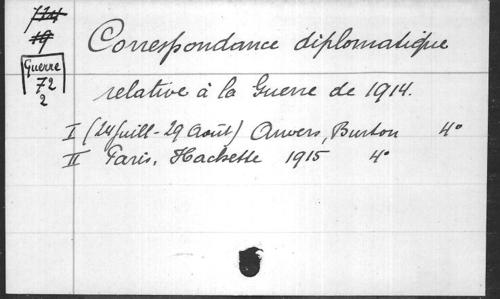 114
19
Guerre
72
2
Correspondance diplomatique
relative à la Guerre de 1914.
I (24 juill - 29 Août) Anvers, Burton 4°
II Paris, Hachette 1915 4°